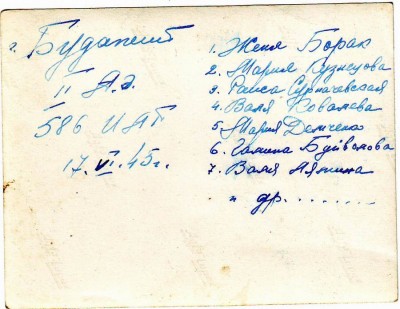 г. Будапешт
II А.д.
586 ИАП
17.VI.45г.
1. Женя Борак
2. Мария Кузнецова
3 Раиса Сурначевская
4. Валя Ковалева
5 Мария Демченко
6. Галина Буйволова
7. Валя
и др.........